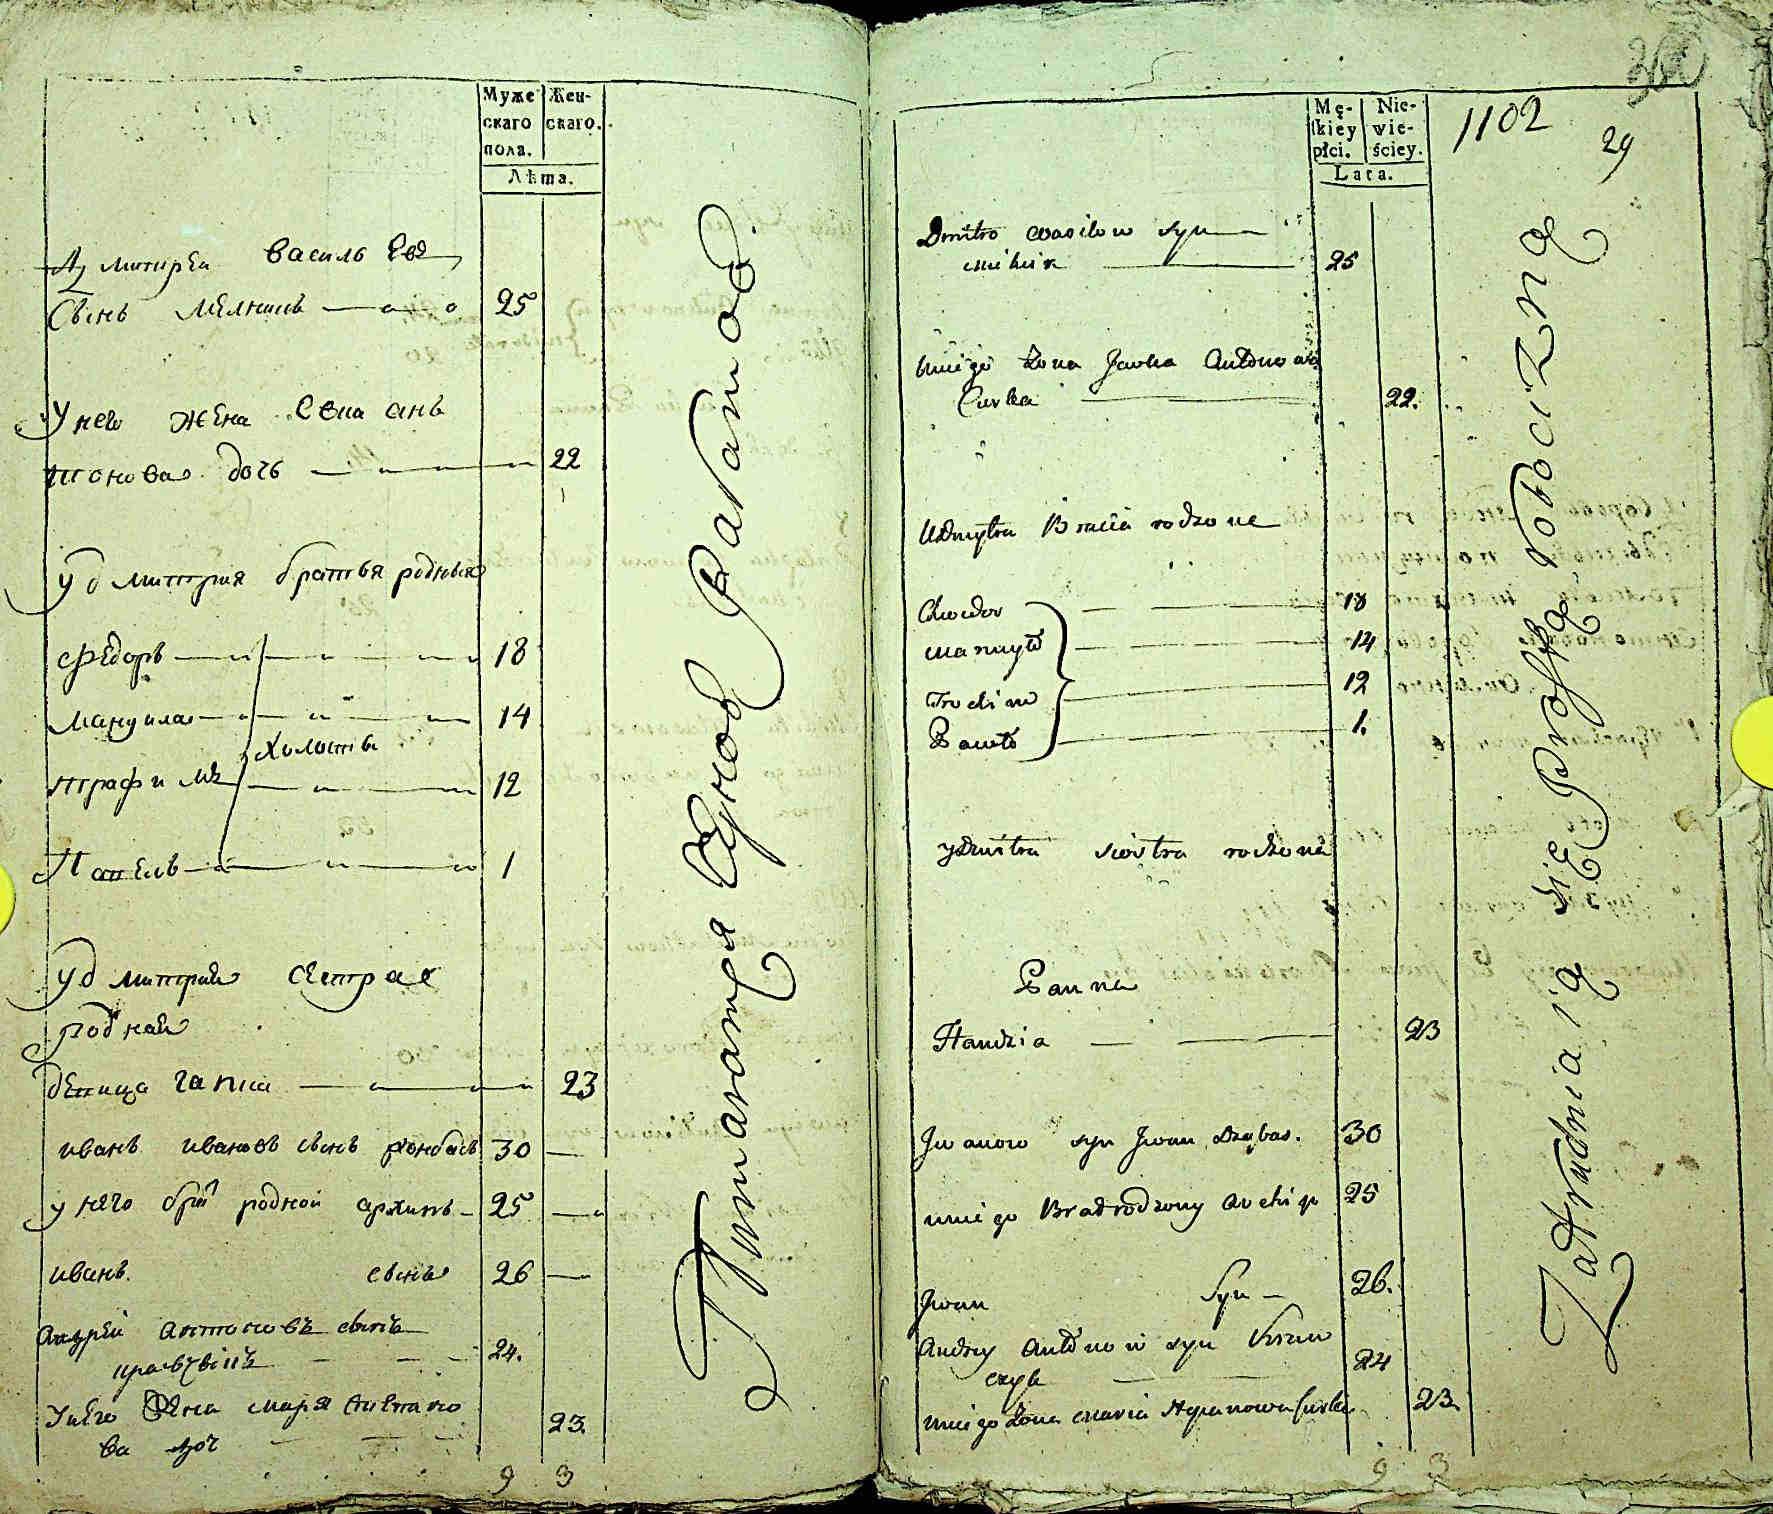 Муже
скаго
пола.
Жен-
скаго.
Лѣта.
Дмитрей Василь Евъ
Сынъ Мелникъ 25
У него жена Евка анъ
тонова дочь 22
У дмитрия братья родныя
Федоръ 18
Мануила 14
холосты
трафимъ 12
Павелъ 1
У дмитрия сестрае
родная
девица гапка 23
иванъ ивановъ сынъ 30
у него брат родной архипъ 25
иванъ сынъ 26
Андрей антоновъ сынъ
кравчикъ 24.
У него Жена марья степано
ва доч 23.
9 3
Питается Сеною Работою
Mę-
skiey
płci.
Nie-
wie-
ściey.
Lata.
1102
29
Dmitro wasilow syn
milnik 25
u niego żona Jewka Antonowa
Curka 22.
U Dmytra Bracia rodzone
Chwedor 18
manuyło 14
Trochim 12
Pawło 1.
y Dmitra siostra rodzona
Panna
Handzia 23
Iwanow syn Iwan 30
u niego Brat rodzony Archip 25
Iwan Syn 26.
Andrey Antonow syn Kraw
czyk 24
u niego żona maria Curka 23.
9 3
Zatrudnia ią się Prostą robocizną